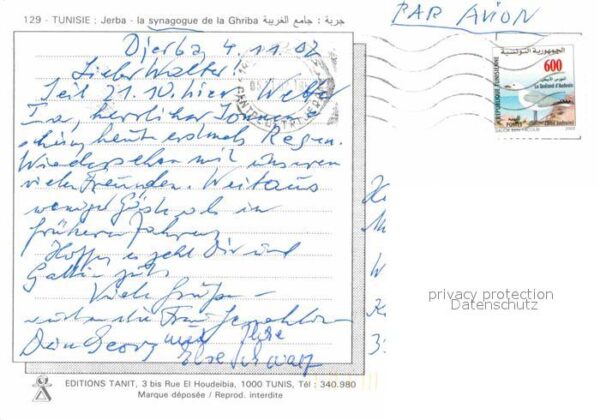 129 - TUNISIE : Jerba - la synagogue de la Ghriba جربة : جامع الغريبة
PAR AVION
Djerba, 4.11.02
Lieber Walter!
Seit 21.10. hier, Wetter
Ia, herrlicher Sonnen
schein, heute erstmals Regen.
Wiedersehen mit unseren
vielen Freunden. Weitaus
weniger Gäste als in
früheren Jahren.
Hoffen es geht Dir und
Gattin gut.
Viele Grüße
Dein Georg und Ilse
الجمهورية التونسية
600
REPUBLIQUE TUNISIENNE
2002
privacy protection
Datenschutz
EDITIONS TANIT, 3 bis Rue El Houdeibia, 1000 TUNIS, Tél : 340.980
Marque déposée / Reprod. interdite